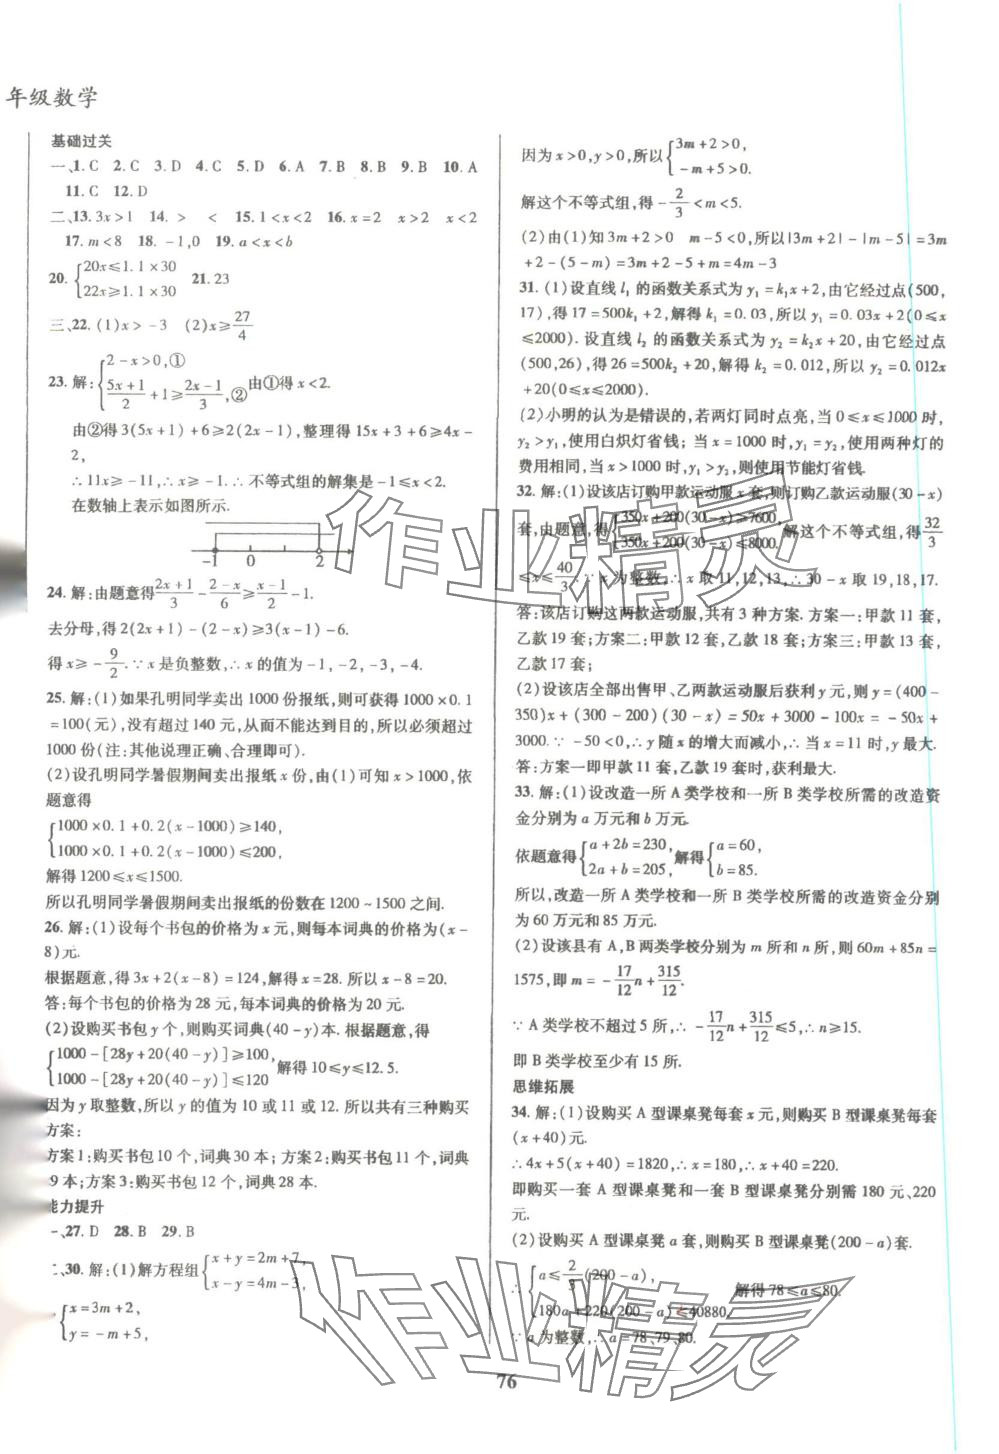 年级数学
基础过关
一、1. C 2. C 3. D 4. C 5. D 6. A 7. B 8. B 9. B 10. A
11. C 12. D
二、13. 3x>1 14. > < 15. 1<x<2 16. x=2 x>2 x<2
17. m<8 18. -1,0 19. a<x<b
20. {20x≤1.1×30
22x≥1.1×30 21. 23
三、22. (1)x>-3 (2)x≥27/4
23. 解:{2-x>0,①
(5x+1)/2+1≥(2x-1)/3,②由①得x<2.
由②得3(5x+1)+6≥2(2x-1),整理得15x+3+6≥4x-
2,
∴11x≥-11,∴x≥-1.∴不等式组的解集是-1≤x<2.
在数轴上表示如图所示.
-1 0 2
24. 解:由题意得(2x+1)/3-(2-x)/6≥(x-1)/2-1.
去分母,得2(2x+1)-(2-x)≥3(x-1)-6.
得x≥-9/2.∵x是负整数,∴x的值为-1,-2,-3,-4.
25. 解:(1)如果孔明同学卖出1000份报纸,则可获得1000×0.1
=100(元),没有超过140元,从而不能达到目的,所以必须超过
1000份(注:其他说理正确、合理即可).
(2)设孔明同学暑假期间卖出报纸x份,由(1)可知x>1000,依
题意得
{1000×0.1+0.2(x-1000)≥140,
1000×0.1+0.2(x-1000)≤200,
解得1200≤x≤1500.
所以孔明同学暑假期间卖出报纸的份数在1200~1500之间.
26. 解:(1)设每个书包的价格为x元,则每本词典的价格为(x-
8)元.
根据题意,得3x+2(x-8)=124,解得x=28.所以x-8=20.
答:每个书包的价格为28元,每本词典的价格为20元.
(2)设购买书包y个,则购买词典(40-y)本.根据题意,得
{1000-[28y+20(40-y)]≥100,
1000-[28y+20(40-y)]≤120 解得10≤y≤12.5.
因为y取整数,所以y的值为10或11或12.所以共有三种购买
方案:
方案1:购买书包10个,词典30本;方案2:购买书包11个,词典
9本;方案3:购买书包12个,词典28本.
能力提升
27. D 28. B 29. B
30. 解:(1)解方程组{x+y=2m+7,
x-y=4m-3,
{x=3m+2,
y=-m+5,
因为x>0,y>0,所以{3m+2>0,
-m+5>0.
解这个不等式组,得-2/3<m<5.
(2)由(1)知3m+2>0 m-5<0,所以|3m+2|-|m-5|=3m
+2-(5-m)=3m+2-5+m=4m-3
31. (1)设直线l₁的函数关系式为y₁=k₁x+2,由它经过点(500,
17),得17=500k₁+2,解得k₁=0.03,所以y₁=0.03x+2(0≤x
≤2000).设直线l₂的函数关系式为y₂=k₂x+20,由它经过点
(500,26),得26=500k₂+20,解得k₂=0.012,所以y₂=0.012x
+20(0≤x≤2000).
(2)小明的认为是错误的,若两灯同时点亮,当0≤x≤1000时,
y₂>y₁,使用白炽灯省钱;当x=1000时,y₁=y₂,使用两种灯的
费用相同,当x>1000时,y₁>y₂,则使用节能灯省钱.
32. 解:(1)设该店订购甲款运动服x套,则订购乙款运动服(30-x)
套,由题意,得{350x+200(30-x)≥7600,
350x+200(30-x)≤8000. 解这个不等式组,得32/3
≤x≤40/3.∵x为整数,∴x取11,12,13,∴30-x取19,18,17.
答:该店订购这两款运动服,共有3种方案.方案一:甲款11套,
乙款19套;方案二:甲款12套,乙款18套;方案三:甲款13套,
乙款17套;
(2)设该店全部出售甲、乙两款运动服后获利y元,则y=(400-
350)x+(300-200)(30-x)=50x+3000-100x=-50x+
3000.∵-50<0,∴y随x的增大而减小,∴当x=11时,y最大.
答:方案一即甲款11套,乙款19套时,获利最大.
33. 解:(1)设改造一所A类学校和一所B类学校所需的改造资
金分别为a万元和b万元.
依题意得{a+2b=230,
2a+b=205,解得{a=60,
b=85.
所以,改造一所A类学校和一所B类学校所需的改造资金分别
为60万元和85万元.
(2)设该县有A,B两类学校分别为m所和n所,则60m+85n=
1575,即m=-17/12n+315/12
∵A类学校不超过5所,∴-17/12n+315/12≤5,∴n≥15.
即B类学校至少有15所.
思维拓展
34. 解:(1)设购买A型课桌凳每套x元,则购买B型课桌凳每套
(x+40)元.
∴4x+5(x+40)=1820,∴x=180,∴x+40=220.
即购买一套A型课桌凳和一套B型课桌凳分别需180元、220
元.
(2)设购买A型课桌凳a套,则购买B型课桌凳(200-a)套.
∴{a≤2/3(200-a),
180a+220(200-a)≤40880. 解得78≤a≤80.
∵a为整数,∴a=78、79、80.
76
作业精灵
作业精灵